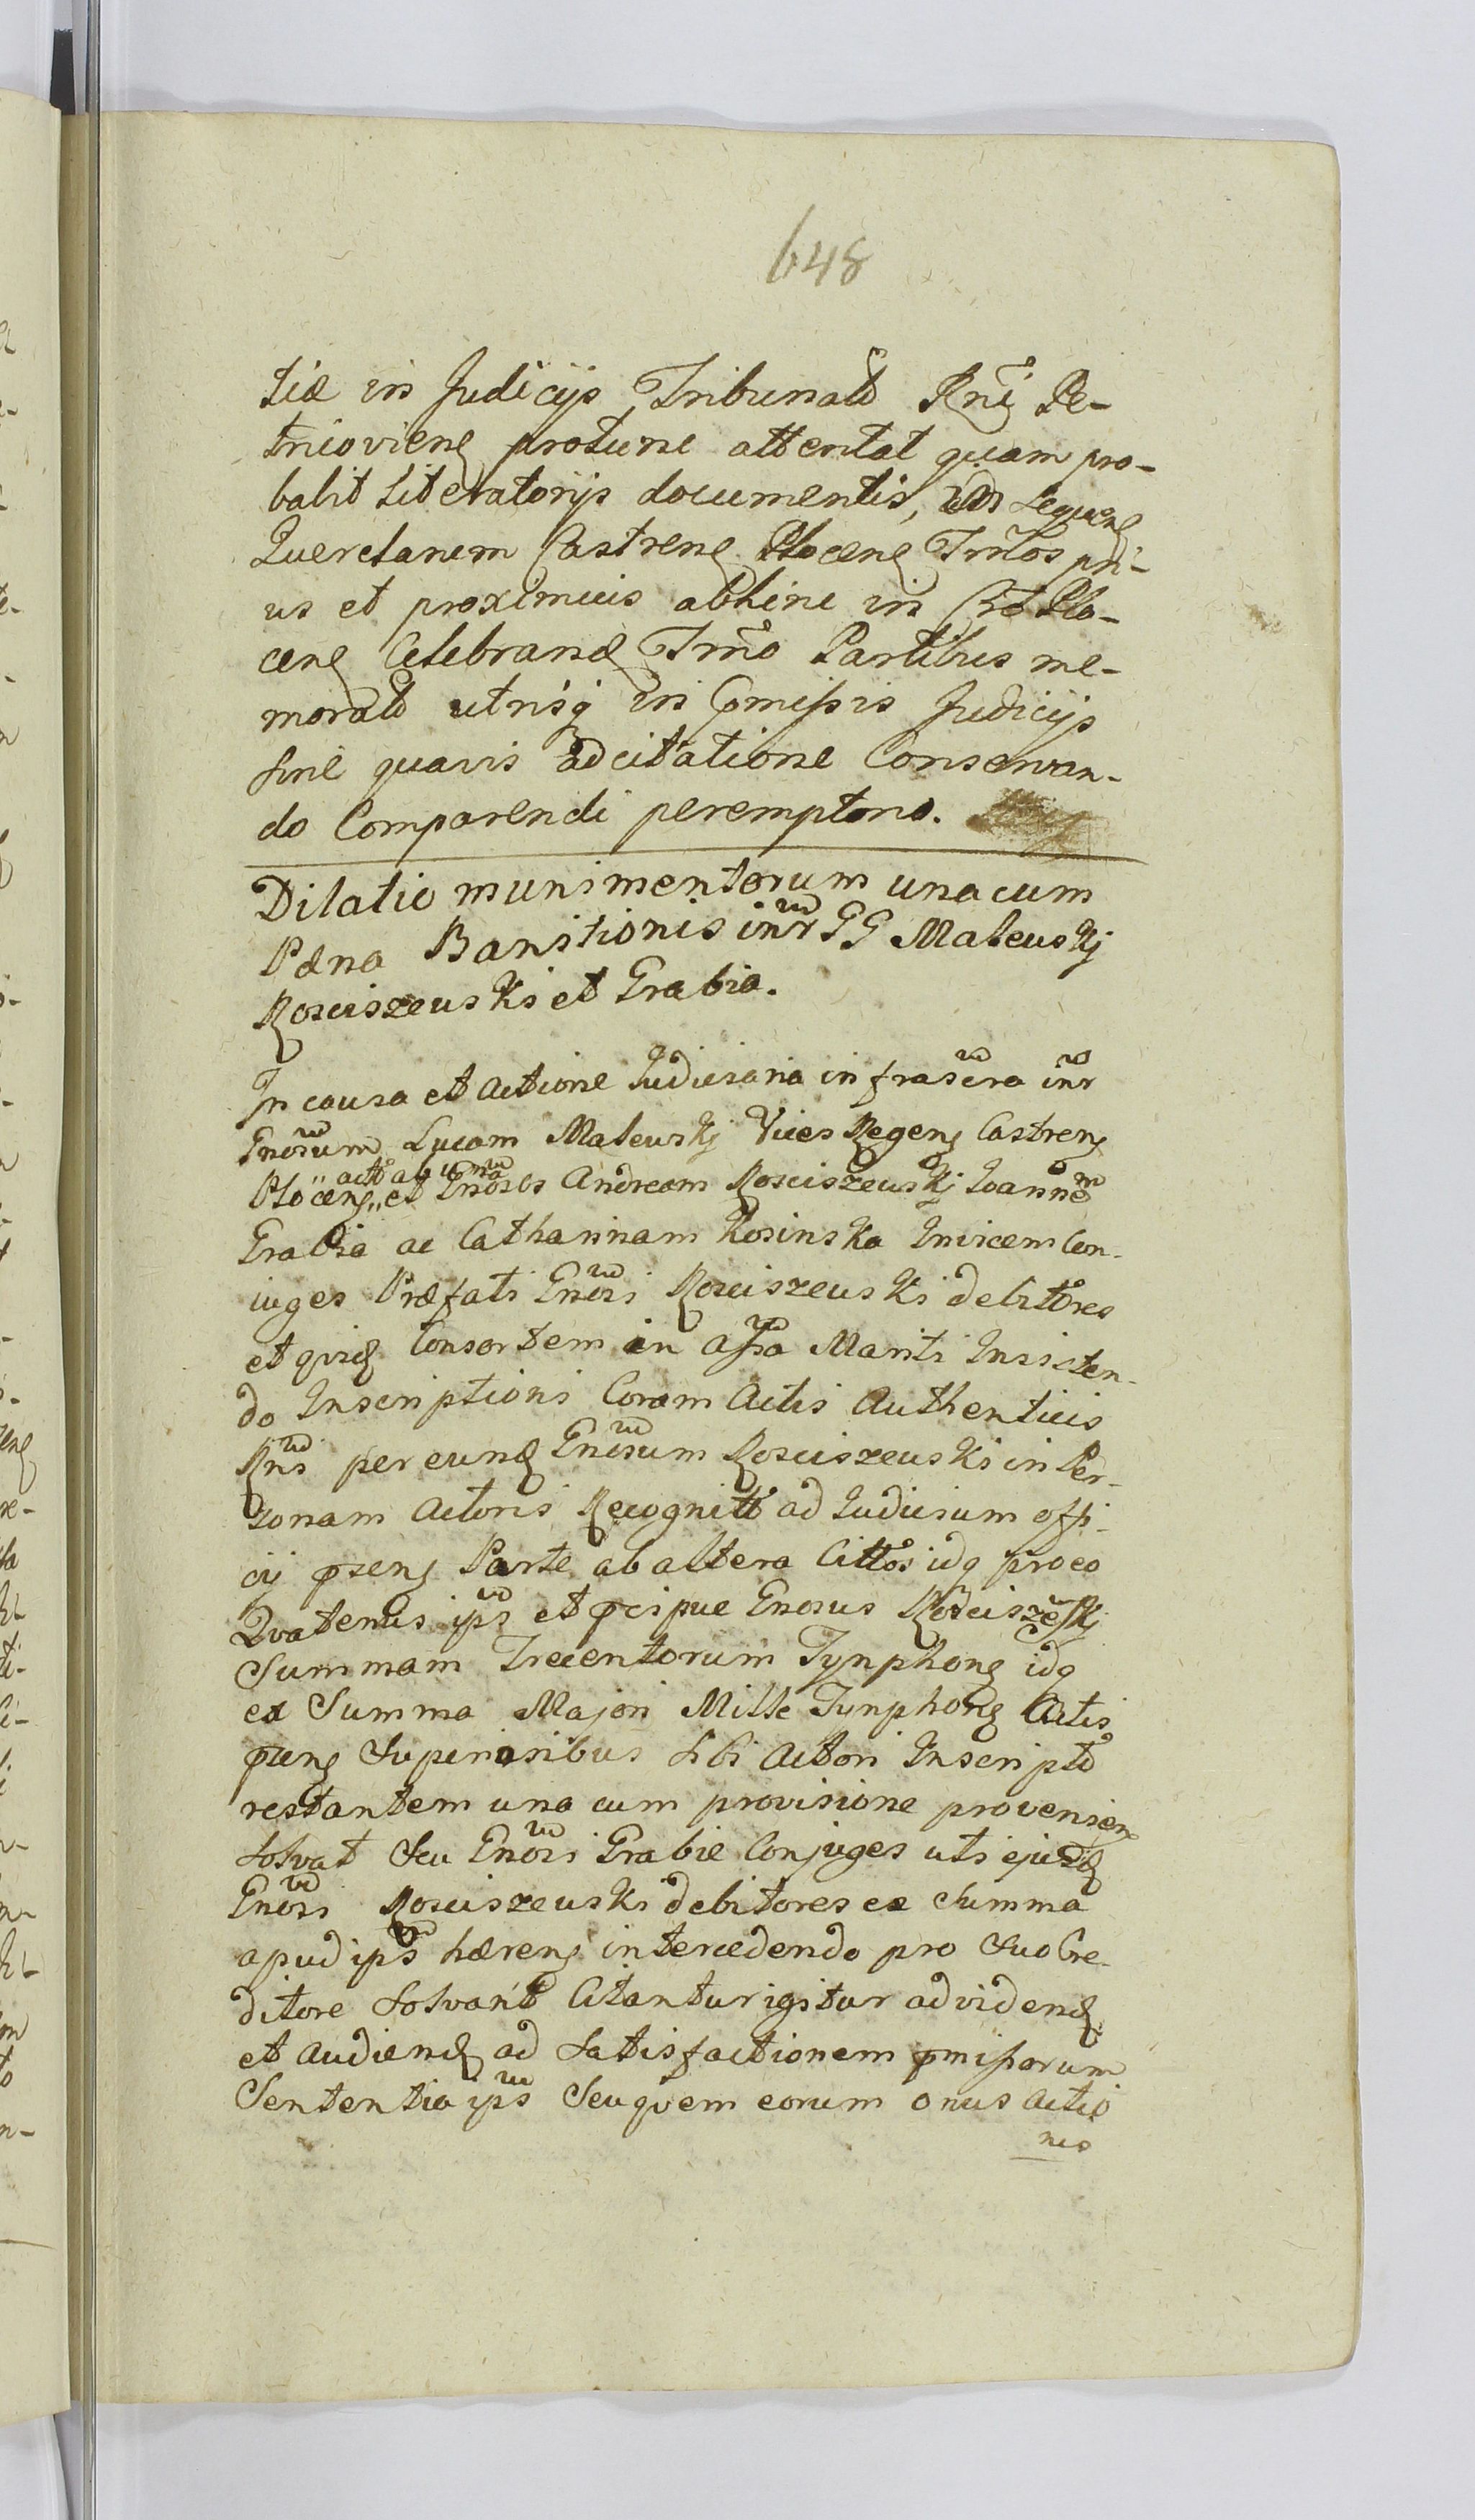 648
tiæ in Judicijs Tribunalῦ Rnĩ Pe-
tricoviens protunc attentat quam pro-
babit Literatorijs documentis, in Sequens
Querelarum Castrens Plocens Trmos pri-
us et proximius abhinc in Cto Plo-
cens Celebrand Trmo Partibus me-
morato utrisq in Cõmissis Judicijs
sine quavis adcitatione Conservan-
do Comparendi peremptorio.
Dilatio munimentorum una cum
Pæna Bannitionis intr GG Maleuskj
Rosciszeuski et Grabia.
In causa et actione Judiciaria infrascra intr
Gnosum Lucam Maleuskj Vices Regens Castrens
Plocens "actt ab una" et Gnosos Andream Rosciszeuskj Joannem
Grabia ac Catharinam Kosinska Invicem Con-
iuges Præfati Gnosi Rosciszeuski debitores
et quid Consortem in assa Mariti Insisten-
do Inscriptioni Coram Actis Authenticis
Rns per eund Gnosum Rosciszeuski in Per-
sonam Actoris Recognitt ad Judicium offi-
cij pzens Parte ab altera Cittos idq pro eo
Quatenus ips et pcipue Gnosus Rosciszeskj
Summam Trecentorum Tynphons idq
ex Summa Majori Mille Tynphons Actis
pzens Superioribus sibi Actori Inscripto
restantem una cum provisione provenien
solvat Seu Gnosi Grabie Conjuges uti ejusd
Gnosi Rosciszeuski debitores ex Summa
apud ips hærens intercedendo pro Suo Cre-
ditore Solvant Citantur igitur ad videnđ
et audienđ ad Satisfactionem pmissorum
Sententia ips Seu quem eorum onus actio
nis